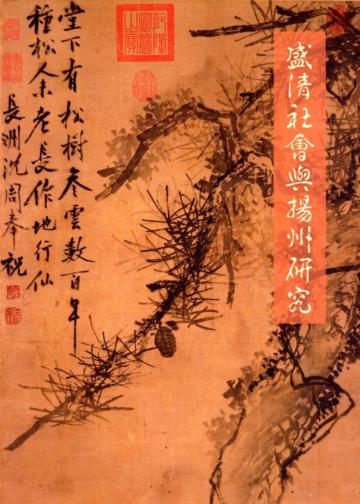 盛清社會與揚州研究
堂下有松樹參雲數百年
種松人未老長作地行仙
長洲沈周奉祝